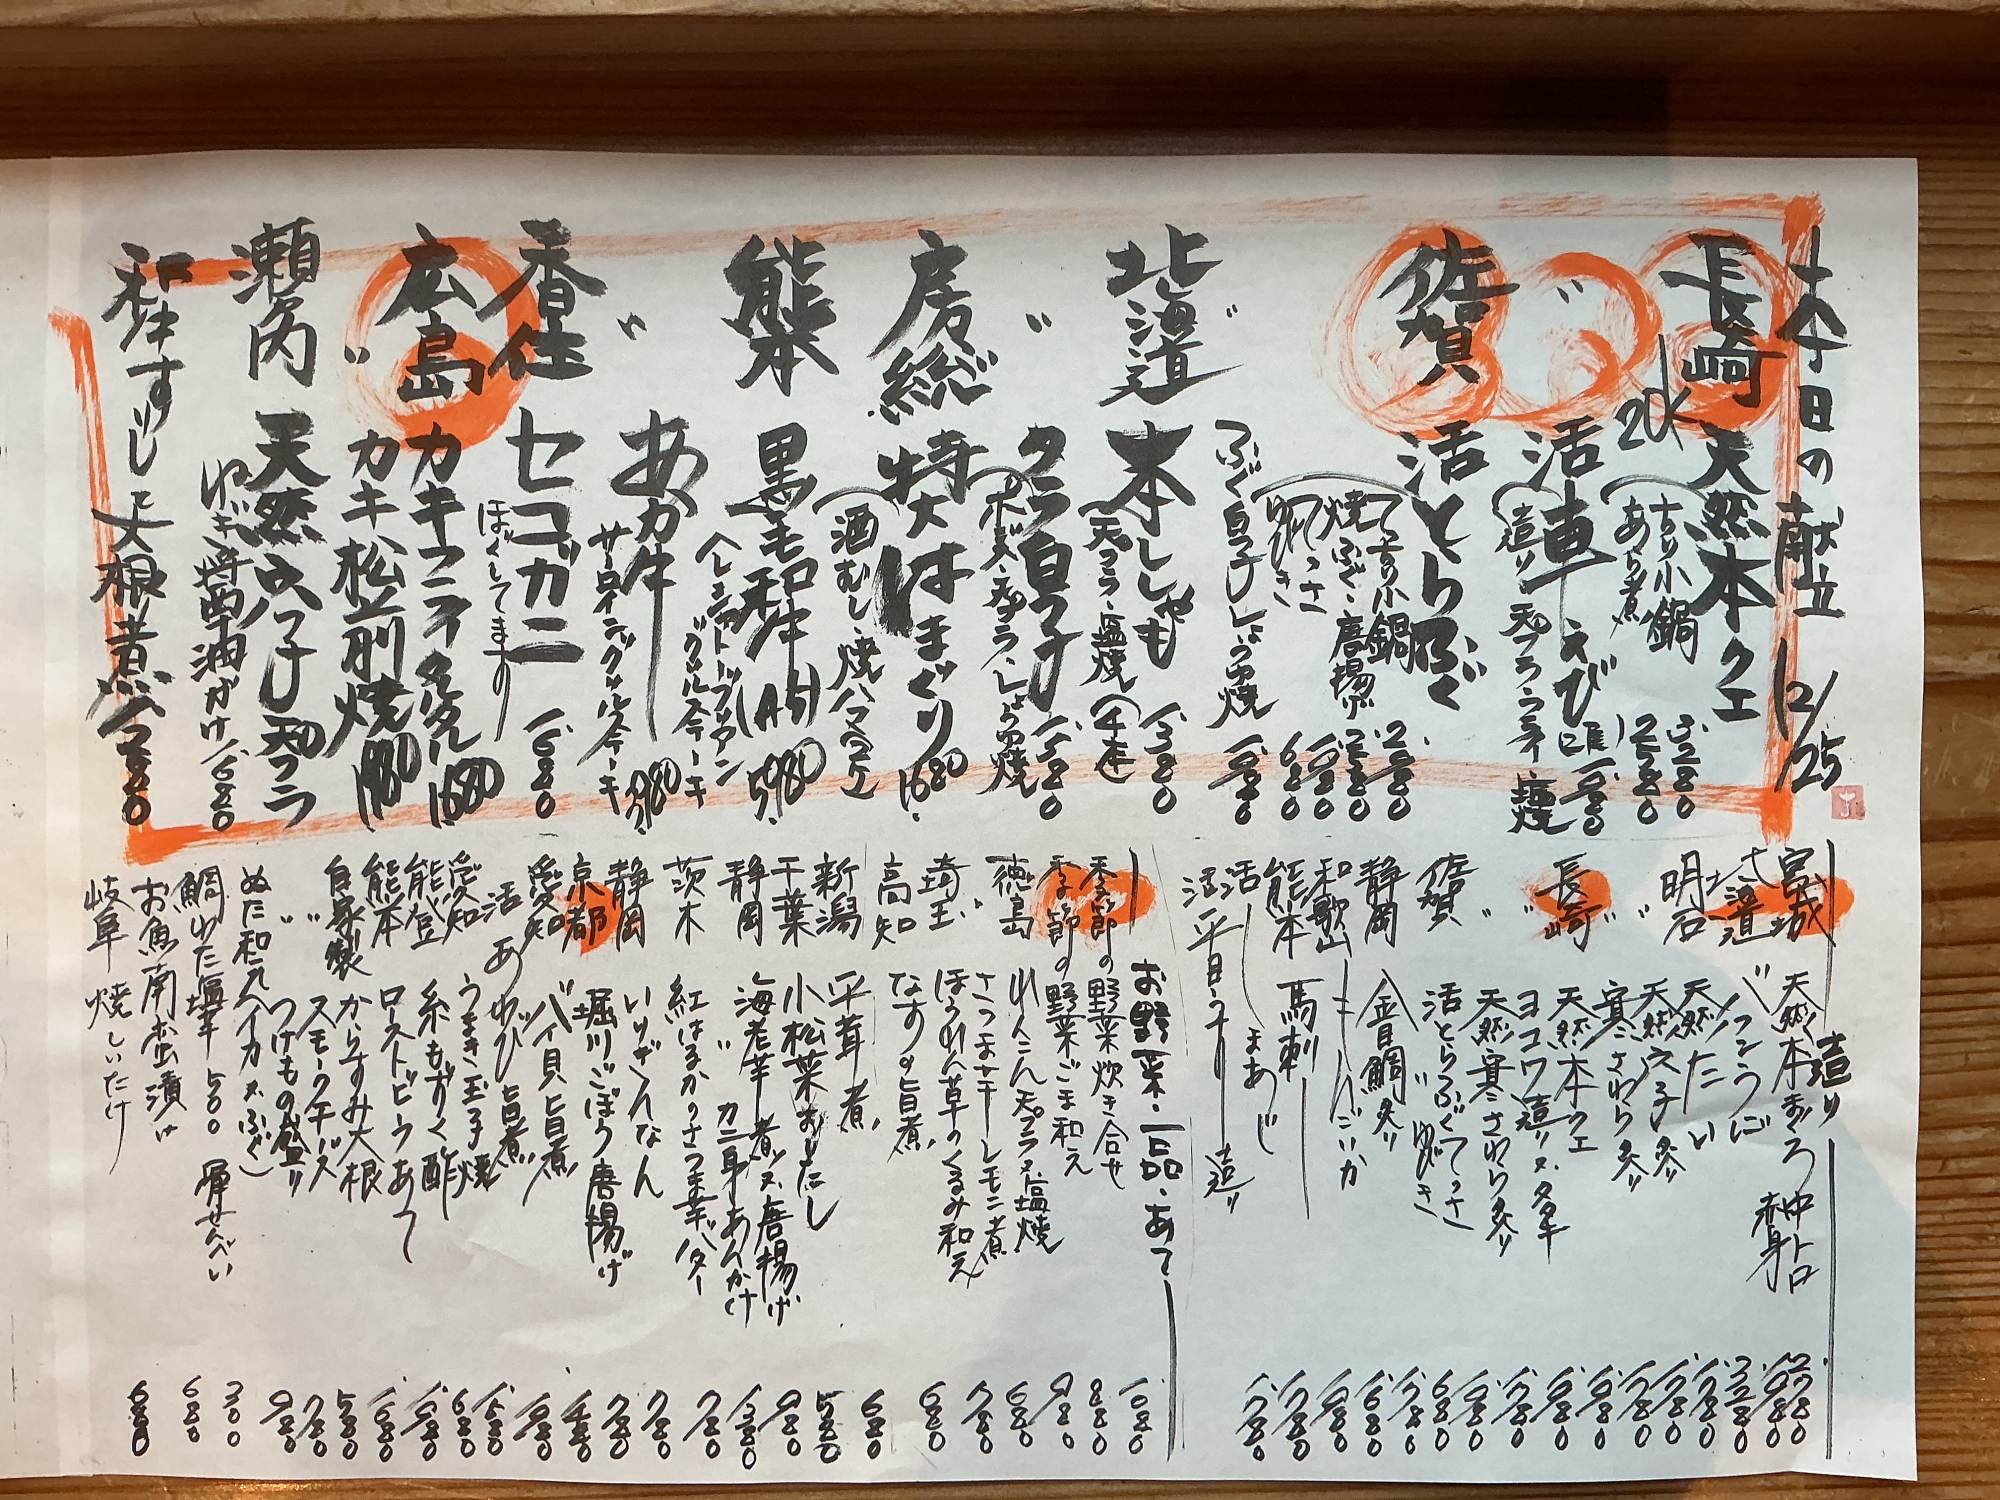 本日の献立 12/25
長崎 天然本クエ
20K
ちり小鍋 3,280
あら煮 2,580
〃 活車えび 1,080
造り 天プラ 塩焼
佐賀 活とらふぐ
てっちり小鍋 2,680
焼ふぐ・唐揚げ 2,580
てっさ 1,080
ゆびき 680
ふぐ白子しょうゆ焼 1,080
北海道 本ししゃも 1,380
天プラ・塩焼(4本)
〃 タラ白子 1,380
ポン酢・天プラ・しょうゆ焼
房総 特大はまぐり 1,680
酒むし・焼ハマ(2ケ)
熊本 黒毛和牛(A5) 5,980
ヘレ シャトーブリアン
シングルステーキ
〃 あか牛 3,980
サーロイン シングルステーキ
香住 セコガニ 1,680
ほぐしてます
広島 カキフライタルタル 1,680
〃 カキ松前焼 1,980
瀬戸内 天然穴子天プラ
ゆず醤油がけ 1,680
和牛すじと大根煮 880
造り
宮城 天然本まぐろ 中トロ
赤身
北海道 ウニ
明石 天然たい
〃 天然穴子炙り
〃 寒さわら炙り
長崎 天然本クエ
〃 ヨコワ造り又タタキ
〃 天然寒さわら炙り
佐賀 活とらふぐてっさ
〃 〃 ゆびき
静岡 金目鯛炙り
和歌山 もんごいか
熊本 馬刺
活 まあじ
活 平目うすり 造り
お野菜・一品・あて
季節の野菜炊き合せ 1,080
季節の野菜ごま和え 880
徳島 れんこん天プラ又塩焼 980
〃 さつまいもレモン煮 680
埼玉 ほうれん草のくるみ和え 780
高知 なすの旨煮 680
新潟 平茸煮 680
千葉 小松菜おひたし 580
静岡 海老芋煮又唐揚げ 980
〃 カニ身あんかけ 1,380
茨木 紅はるかのさつま芋バター 780
静岡 いりぎんなん 780
京都 堀川ごぼう唐揚げ 780
愛知 バイ貝旨煮
活 あわび旨煮
愛知 うまき玉子焼
能登 糸もずく酢
熊本 ローストビーフあて
自家製 からすみ大根
〃 スモークチーズ
〃 つけもの盛り
ぬた和え(イカ又ふぐ)
鯛わた塩辛 500
お魚南蛮漬け
岐阜 焼しいたけ
岸せんべい